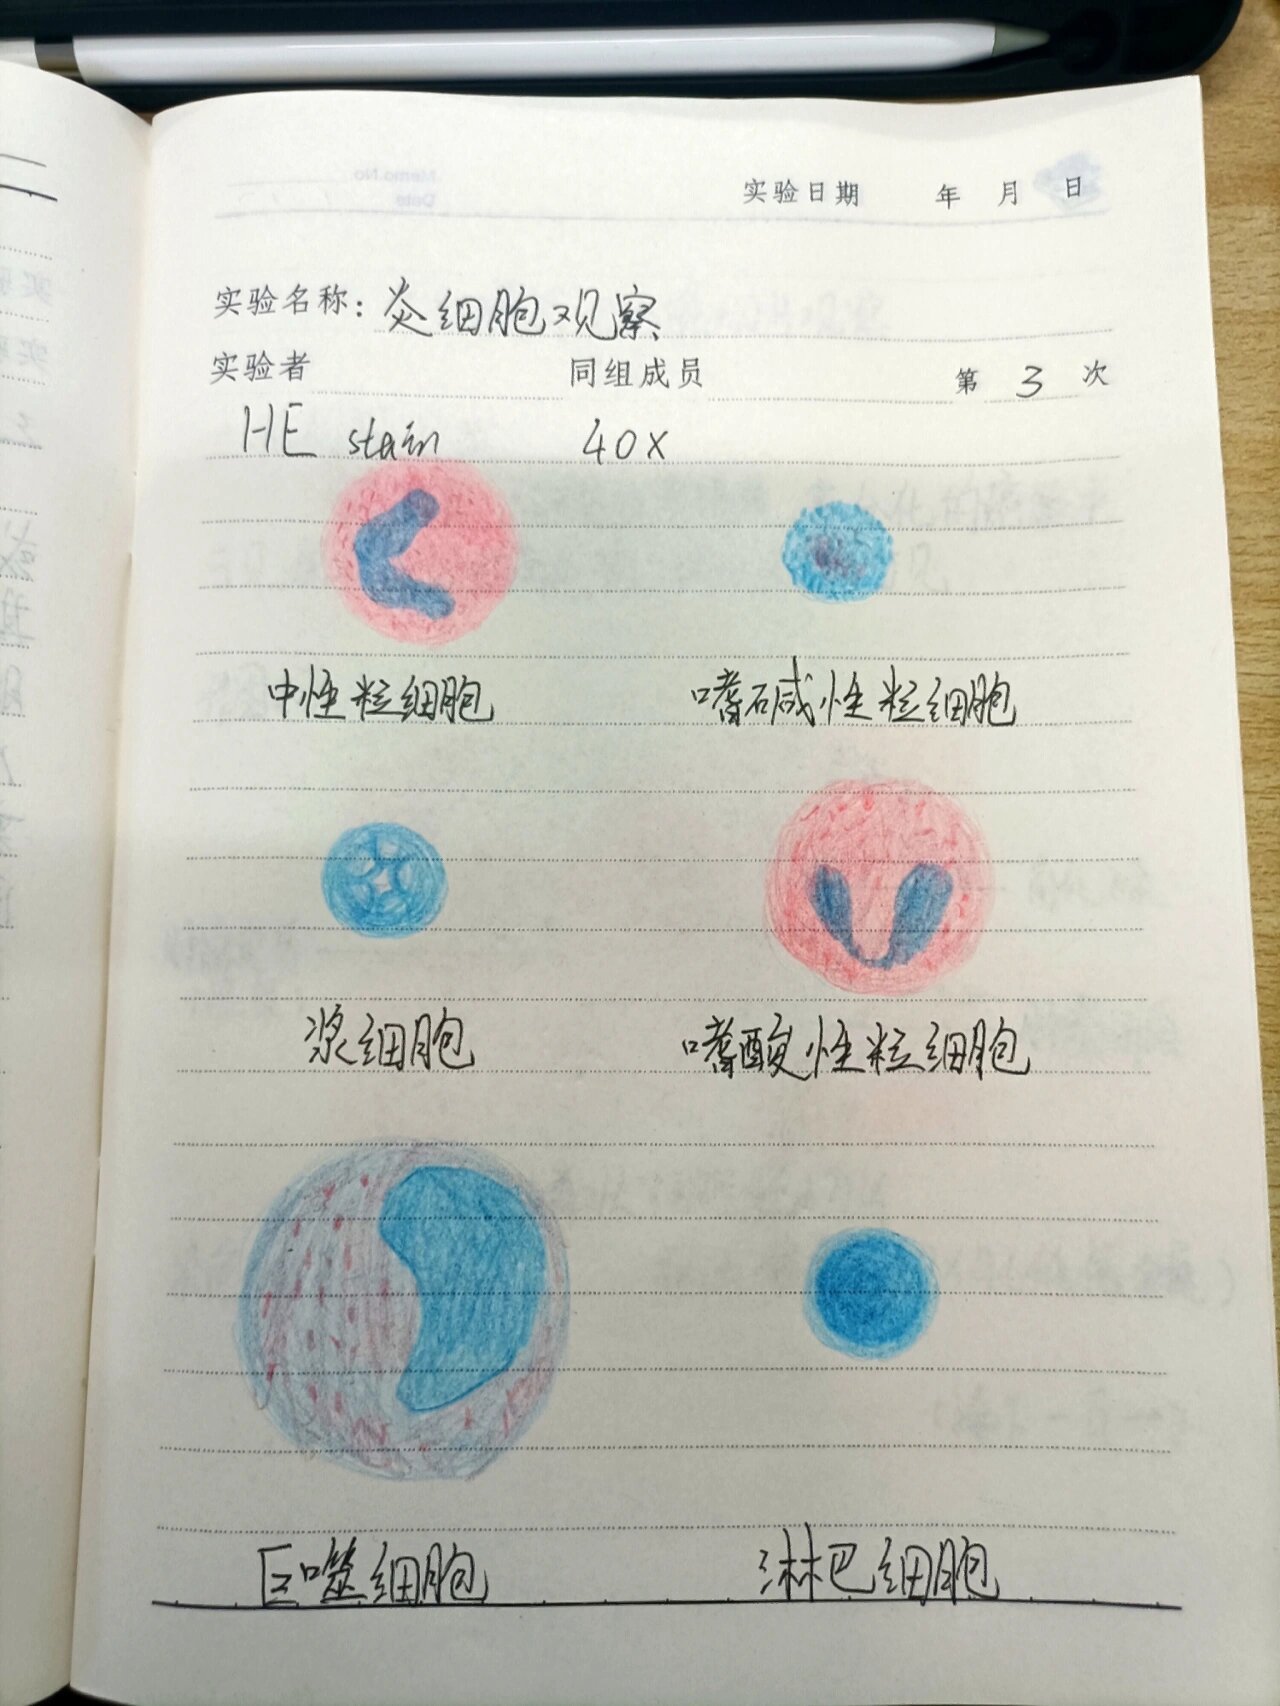 实验日期 年 月 日
实验名称：炎细胞观察
实验者 同组成员 第 3 次
HE stain 40X
中性粒细胞 嗜碱性粒细胞
浆细胞 嗜酸性粒细胞
巨噬细胞 淋巴细胞